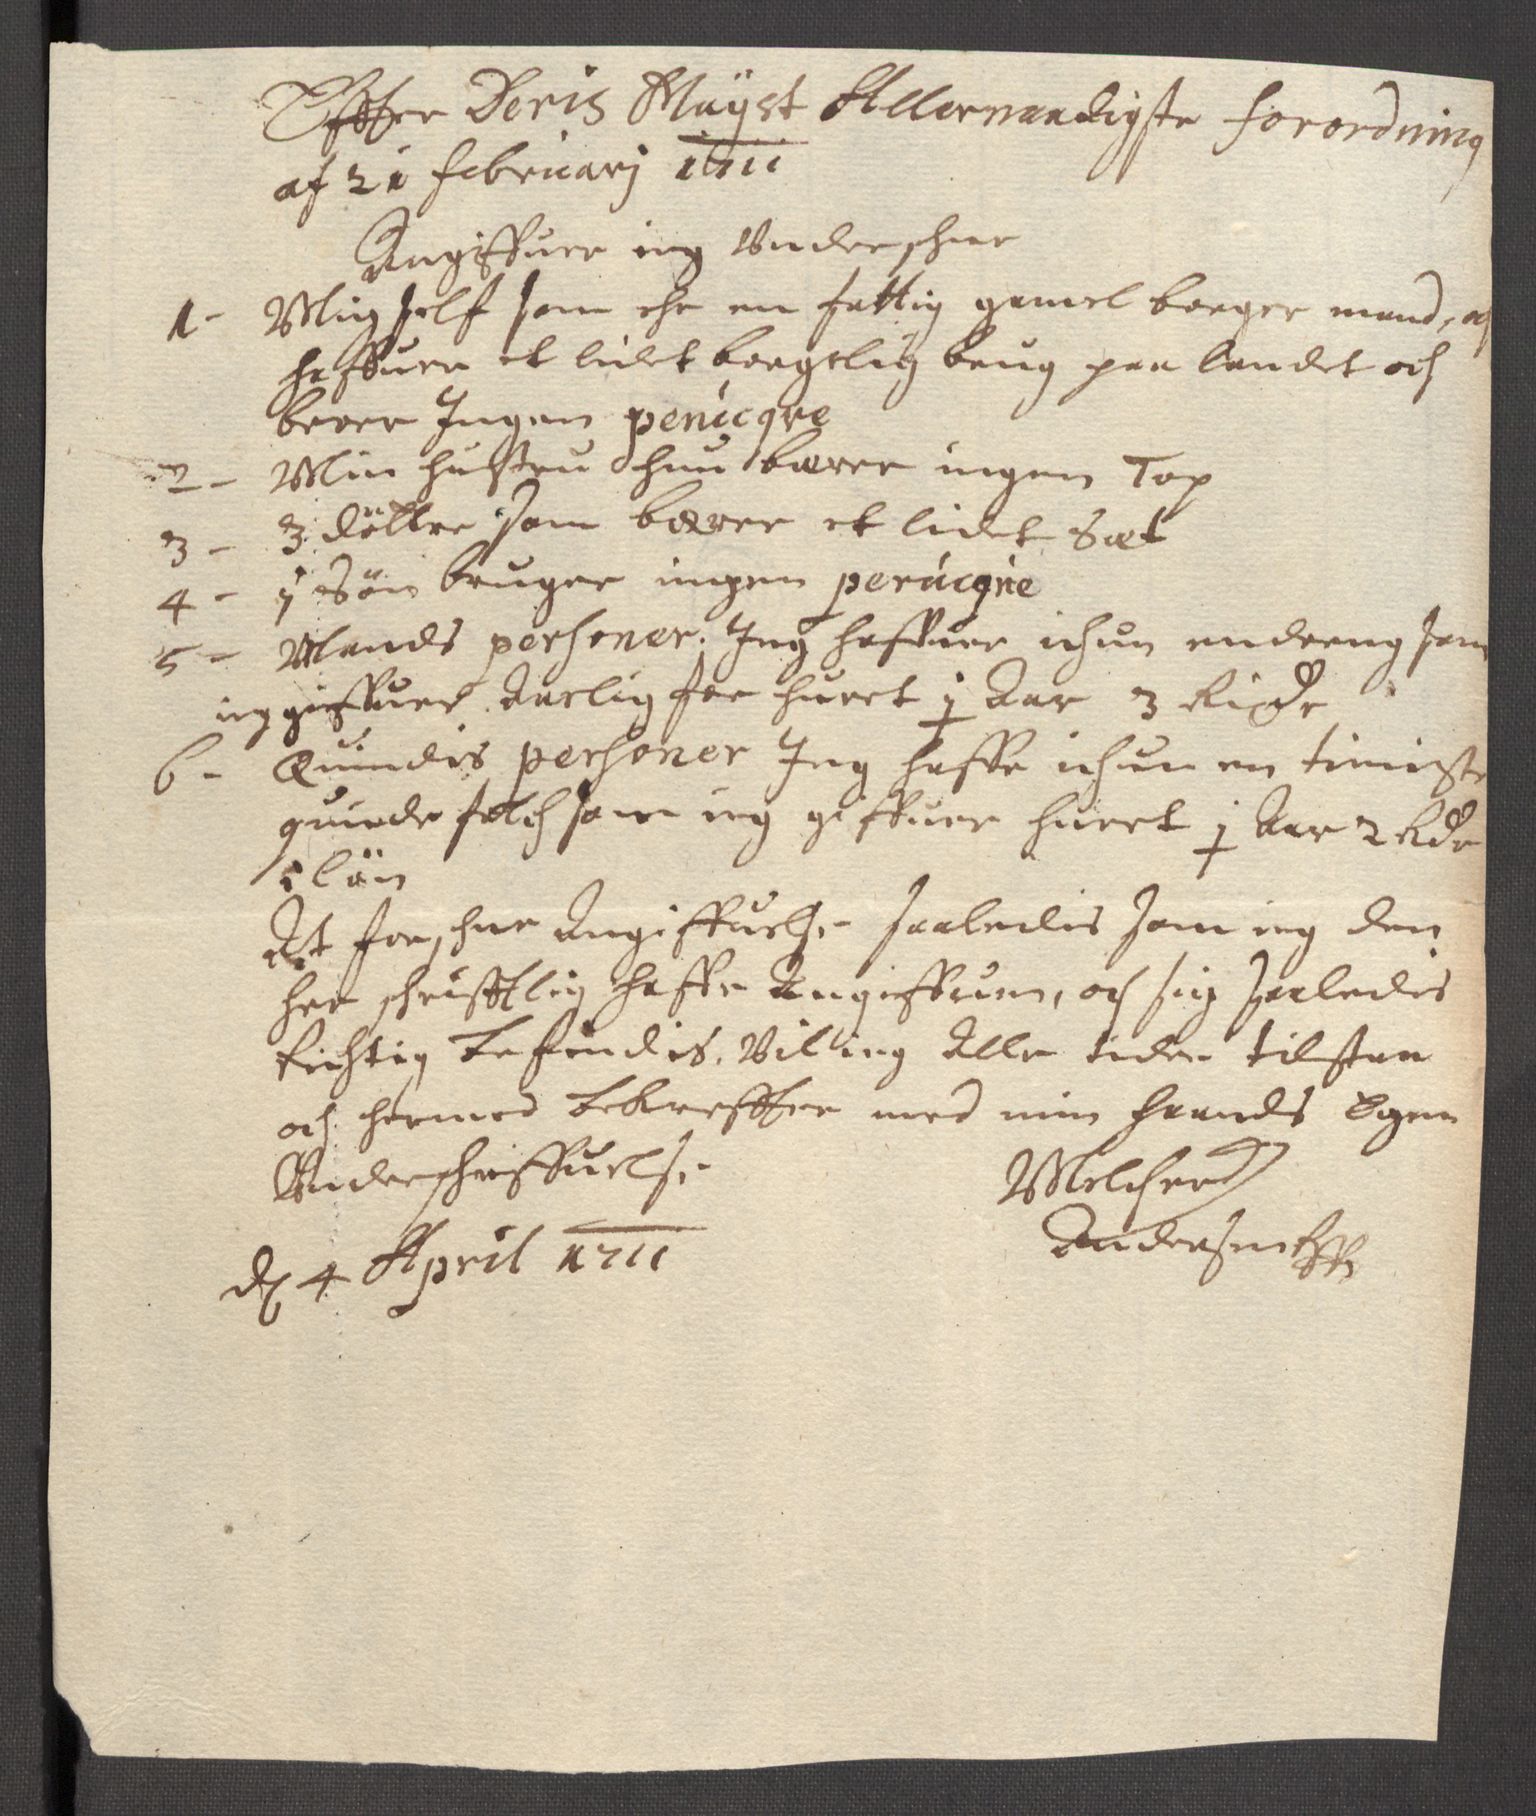 Effter Deris Mayst Allernaadigste forordning
af 21 februarj 1711
Angiffuer ieg Underschrr
1- Mig self som ehr en fattig gamel borger mand, og
haffuer et lidet borgelig brug paa landet och
berer Ingen perucqve
2- Min hustru hun bærer ingen Top
3- 3 döttre som bærer et lidet Sæt
4- j Sön bruger ingen perucqve
5- Mands personer. Jeg haffuer ichun en dreng som
ieg giffuer Aarlig for huert j Aar 3 Rixdr
6- Quindis personer Jeg haffr ichun en tieniste
quinde folch som ieg giffuer huert j Aar 2 Rdr
i lön
At forschrr Angiffuelse saaledis som ieg den
her schrifftlig haffr Angiffuen, och sig saaledis
Richtig befindis. Vil ieg Alle tider tilstaa
och hermed bekreffter med min haands Egen
Underschriffuelse
Melcher
Andersen
dn 4 April 1711